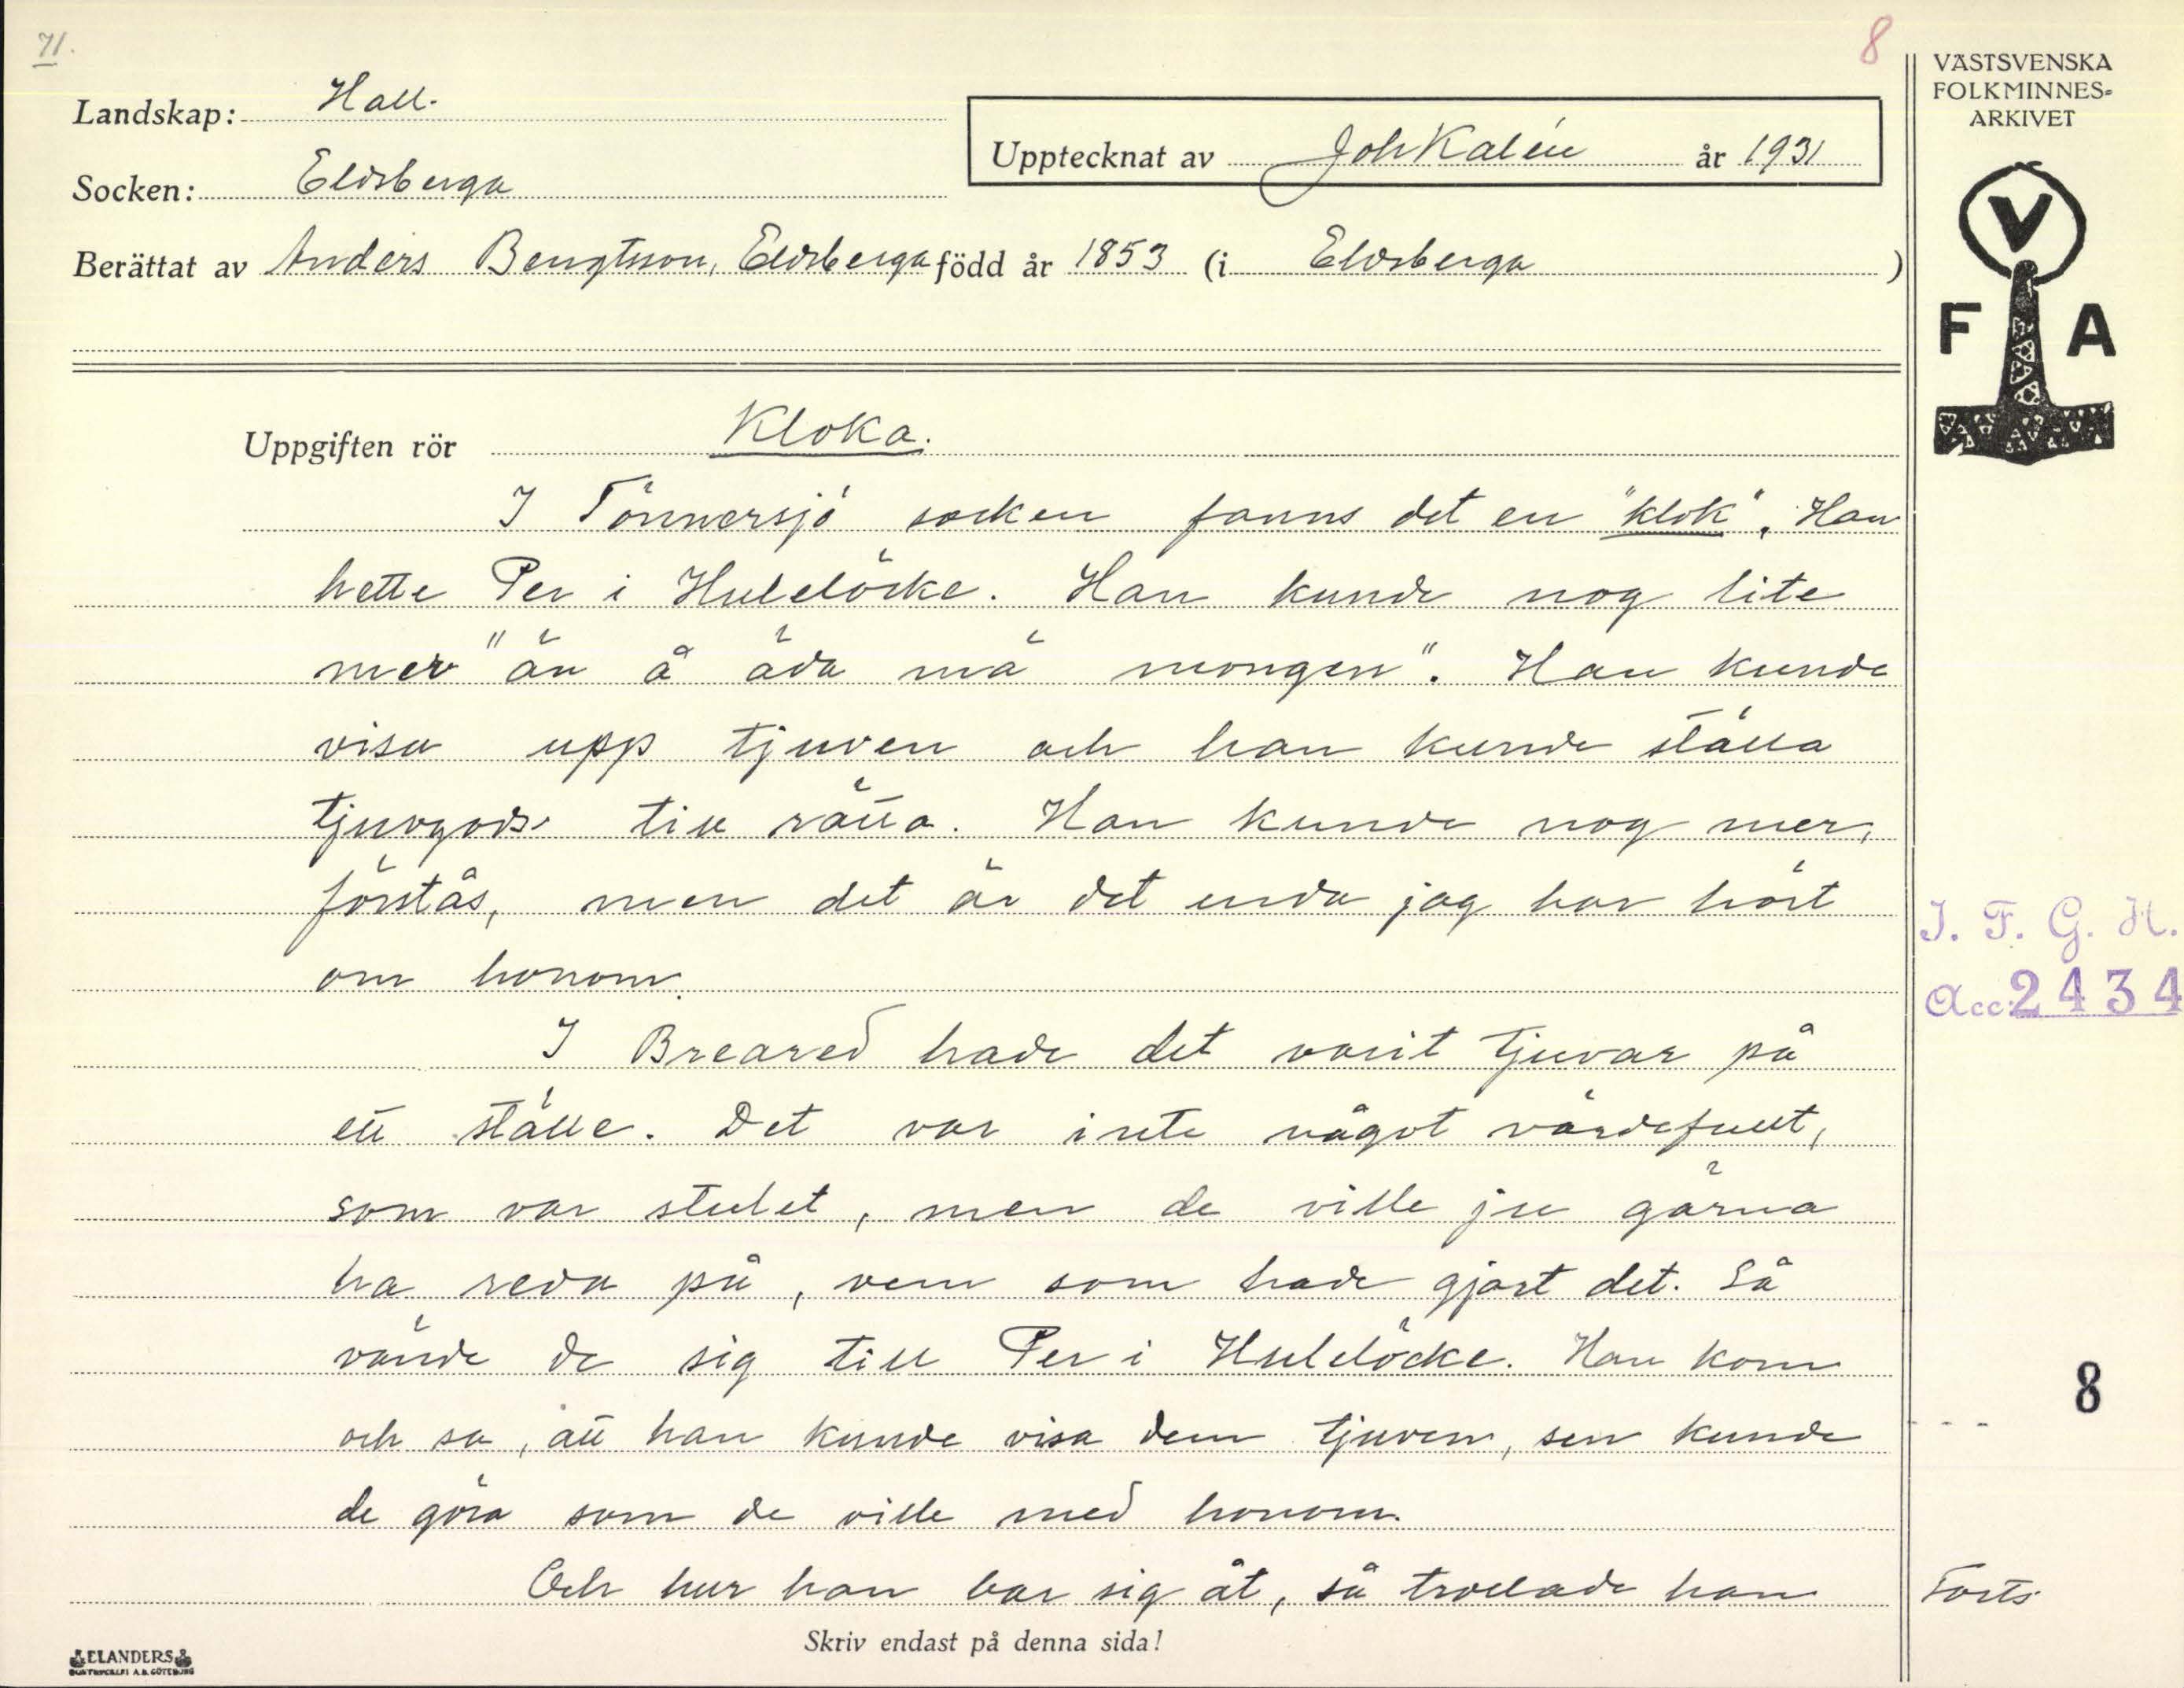 71.
8
VÄSTSVENSKA
FOLKMINNES-
ARKIVET
Landskap: Hall.
Upptecknat av Joh Kalén år 1931
Socken: Eldsberga
Berättat av Anders Bengtsson, Eldsberga född år 1853 (i Eldsberga )
V
F A
Uppgiften rör Kloka.
I Tönnersjö socken fanns det en "klok". Han
hette Per i Hulelöcke. Han kunde nog lite
mer "än å äda mä mongen". Han kunde
visa upp tjuven och han kunde ställa
tjuvgods till rätta. Han kunde nog mer,
förstås, men det är det enda jag har hört
om honom.
I Breared hade det varit tjuvar på
ett ställe. Det var inte något värdefullt,
som var stulet, men de ville ju gärna
ha reda på, vem som hade gjort det. Så
vände de sig till Per i Hulelöcke. Han kom
och sa, att han kunde visa dem tjuven, sen kunde
de göra som de ville med honom.
Och hur han bar sig åt, så trollade han
I. F. G. H.
Acc. 2434
8
Forts.
Skriv endast på denna sida!
ELANDERS